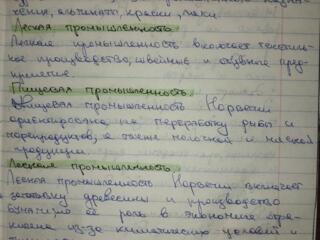 хения, альчинаты, краски, лаки.
Легкая промышленность
Легкая промышленность включает тексти-
ное производство, швейные и обувные пред-
приятие.
Пищевая промышленность.
Пищевая промышленность Норвегии
ориентирована на переработку рыбы и
морепродуктов, а также молочной и мясной
продукции.
Лесная промышленность
Лесная промышленность Норвегии включает
заготовку древесины и производство
бумаги, но её роль в экономике огра-
ничена из-за климатических условий и